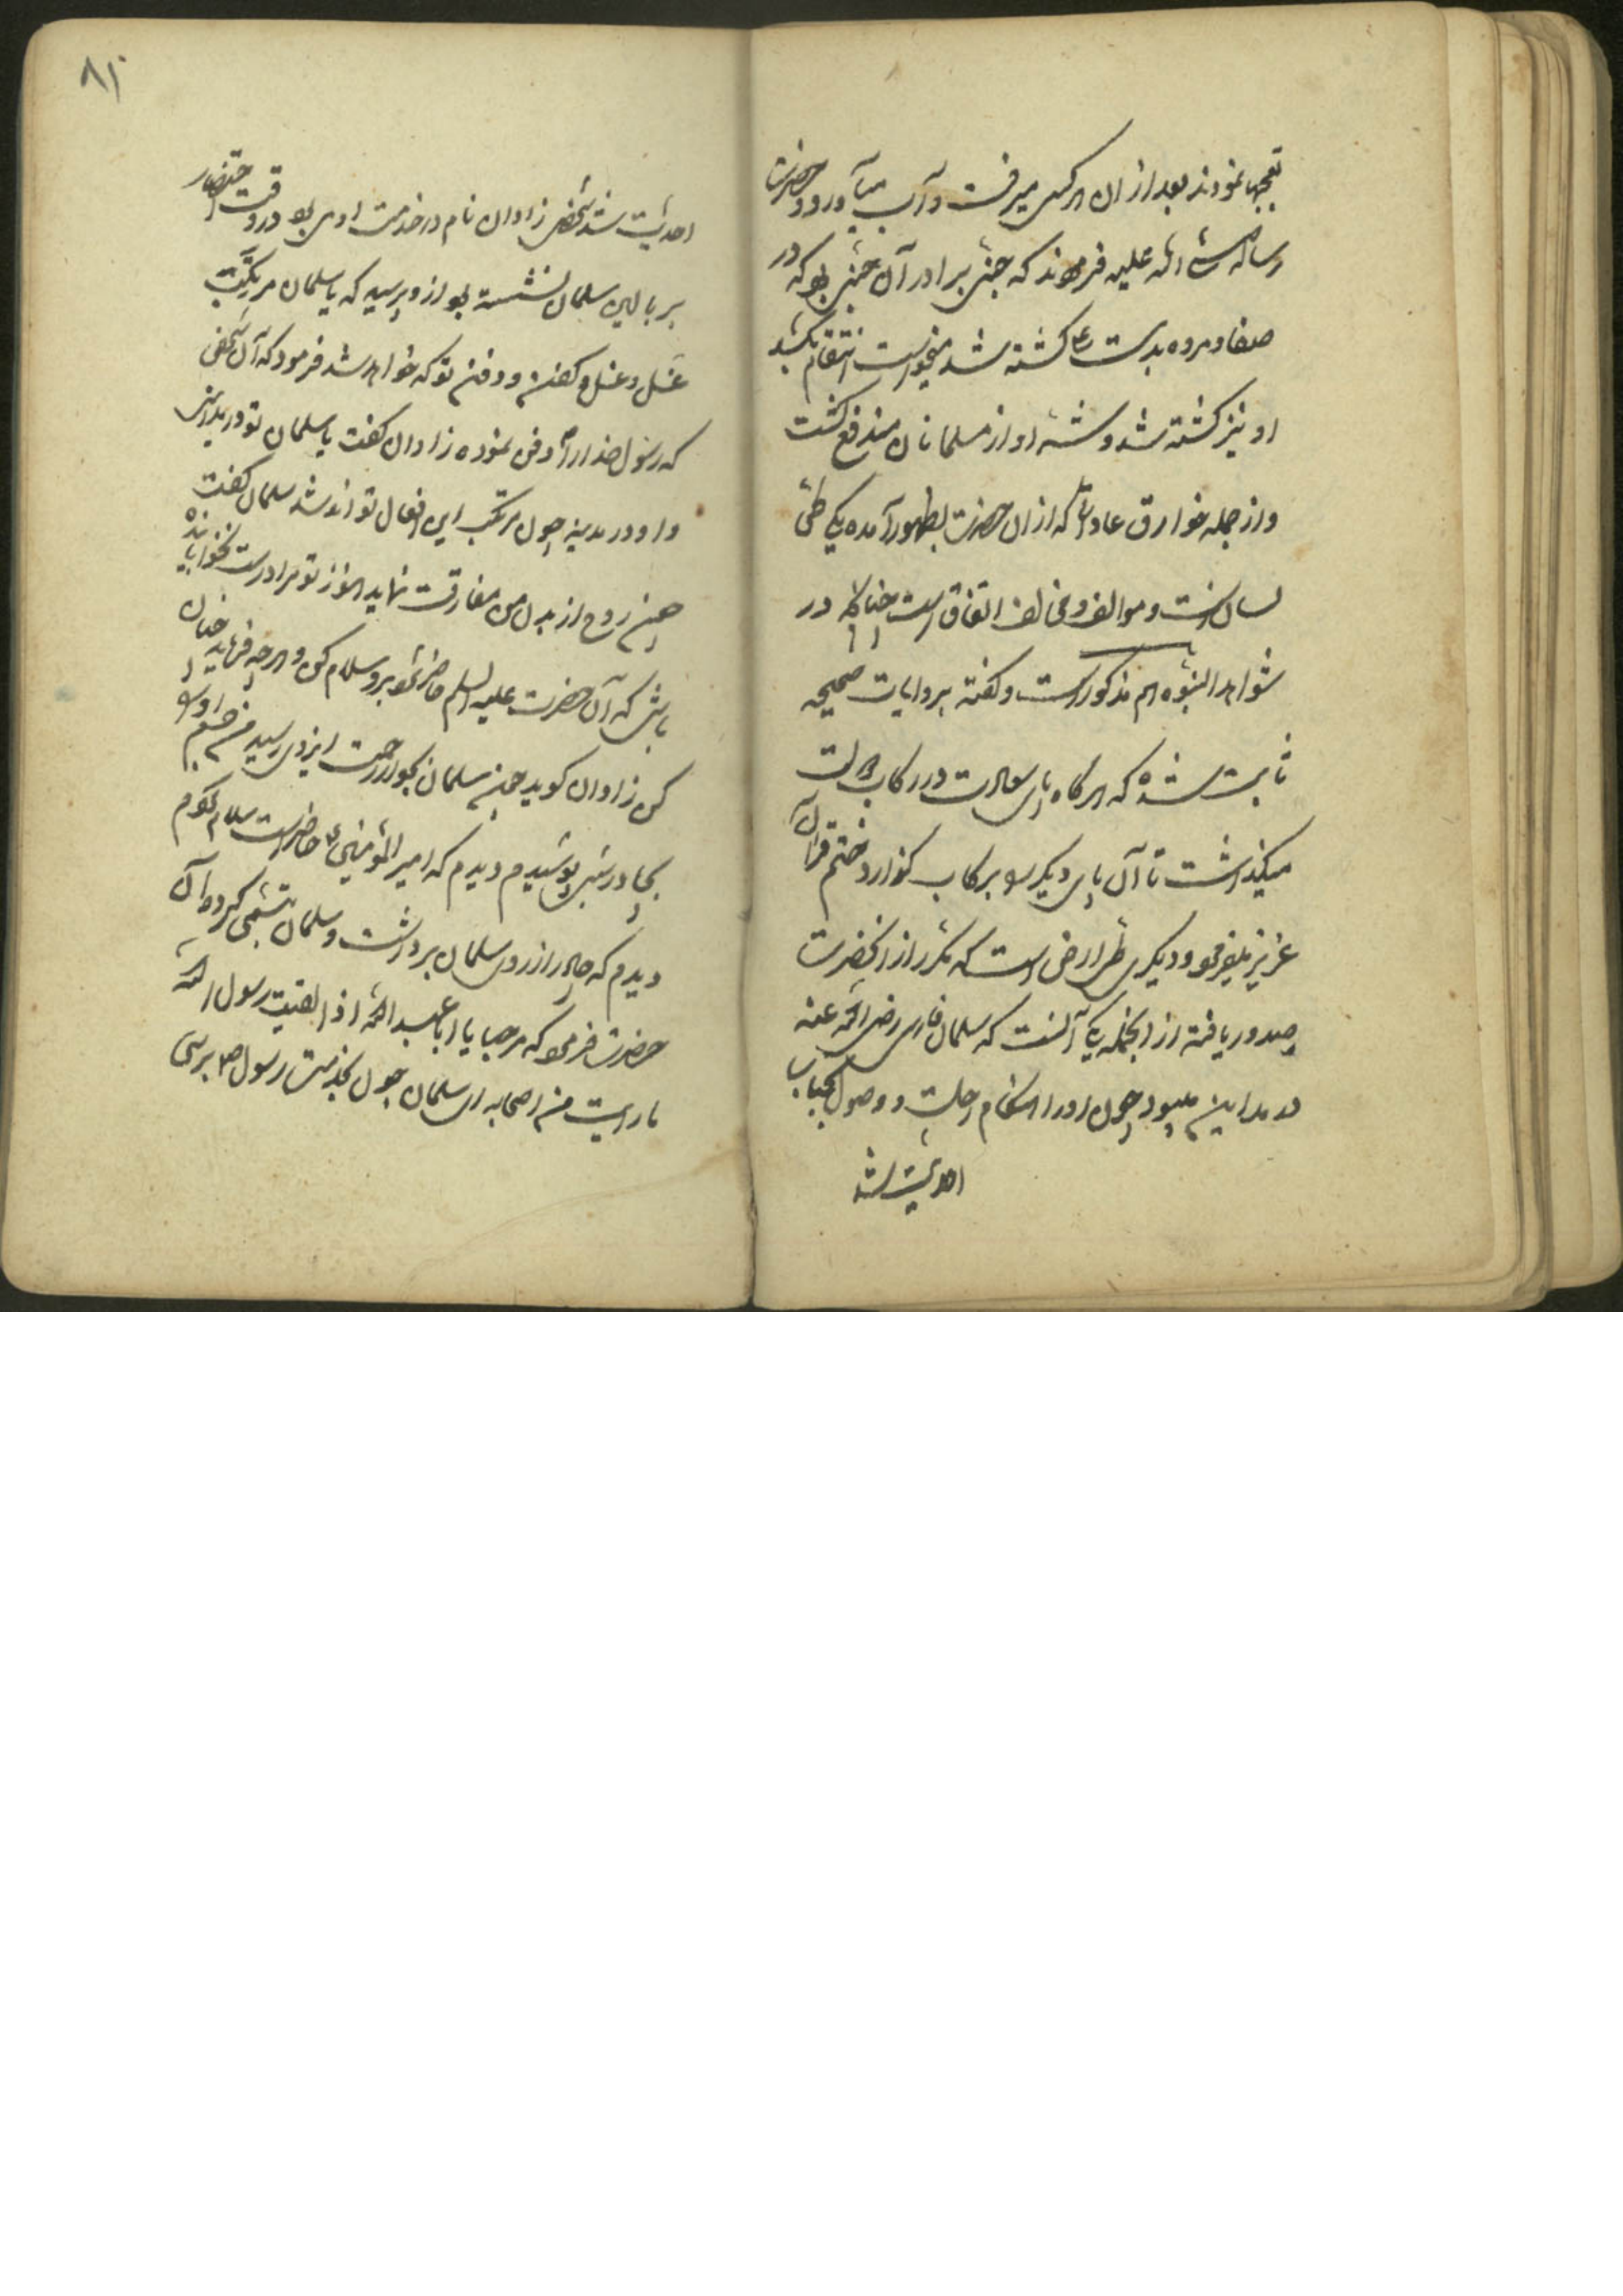 تعجبها نمودند بعد از ان هر کس میرفت و آب میآورد و حضرت
رساله صلی الله علیه فرمودند که جنی برادر آن جنی بود که در
صفا و مروه بدست کشته شد میخواست انتقام بکشد
او نیز کشته شد و شر او از مسلمانان مندفع گشت
و از جمله خوارق عادات که از ان حضرت بظهور آمده یکی طی
لسان است و موالف و مخالف اتفاق است چنانکه در
شواهد النبوه هم مذکور است و گفته بروایات صحیحه
ثابت شده که هرگاه پای سعادت در رکاب
میگذاشت تا آن پای دیگر بر رکاب گذارد ختم قران
عزیز میفرمود و دیگری طی ارض است که مکرر از انحضرت
صدور یافته از انجمله یکی آنست که سلمان فارسی رضی الله عنه
در مداین میبود چون او را هنگام رحلت و وصول بجناب
احدیت شد
۸۱
احدیت شد شخصی زاوان نام در خدمت او می بود در وقت احتضار
بر بالین سلمان نشسته بود از و پرسید که یا سلمان مرتکب
غسل و کفن و دفن تو که خواهد شد فرمود که آن شخص
که رسول خدا را دفن نموده زاوان گفت یا سلمان تو در مداین
و او در مدینه چون مرتکب این افعال تو اند شد سلمان گفت
روح از بدن من مفارقت نماید هنوز تو مرا درست نخوابانیده
باشی که آن حضرت علیه السلم حاضر شود برو سلام کن و هر چه فرماید چنان
کن زاوان گوید سلمان بجوار رحمت ایزدی رسید من جسم او
بچادر شب پوشیدم دیدم که امیر المؤمنین حاضر است سلام کردم
دیدم که چادر از روی سلمان برداشت و سلمان تبسمی کرد و آن
حضرت فرمود که مرحبا یا ابا عبد الله اذا لقیت رسول الله
ما رایت من اصحابه ای سلمان چون بخدمت رسول برسی